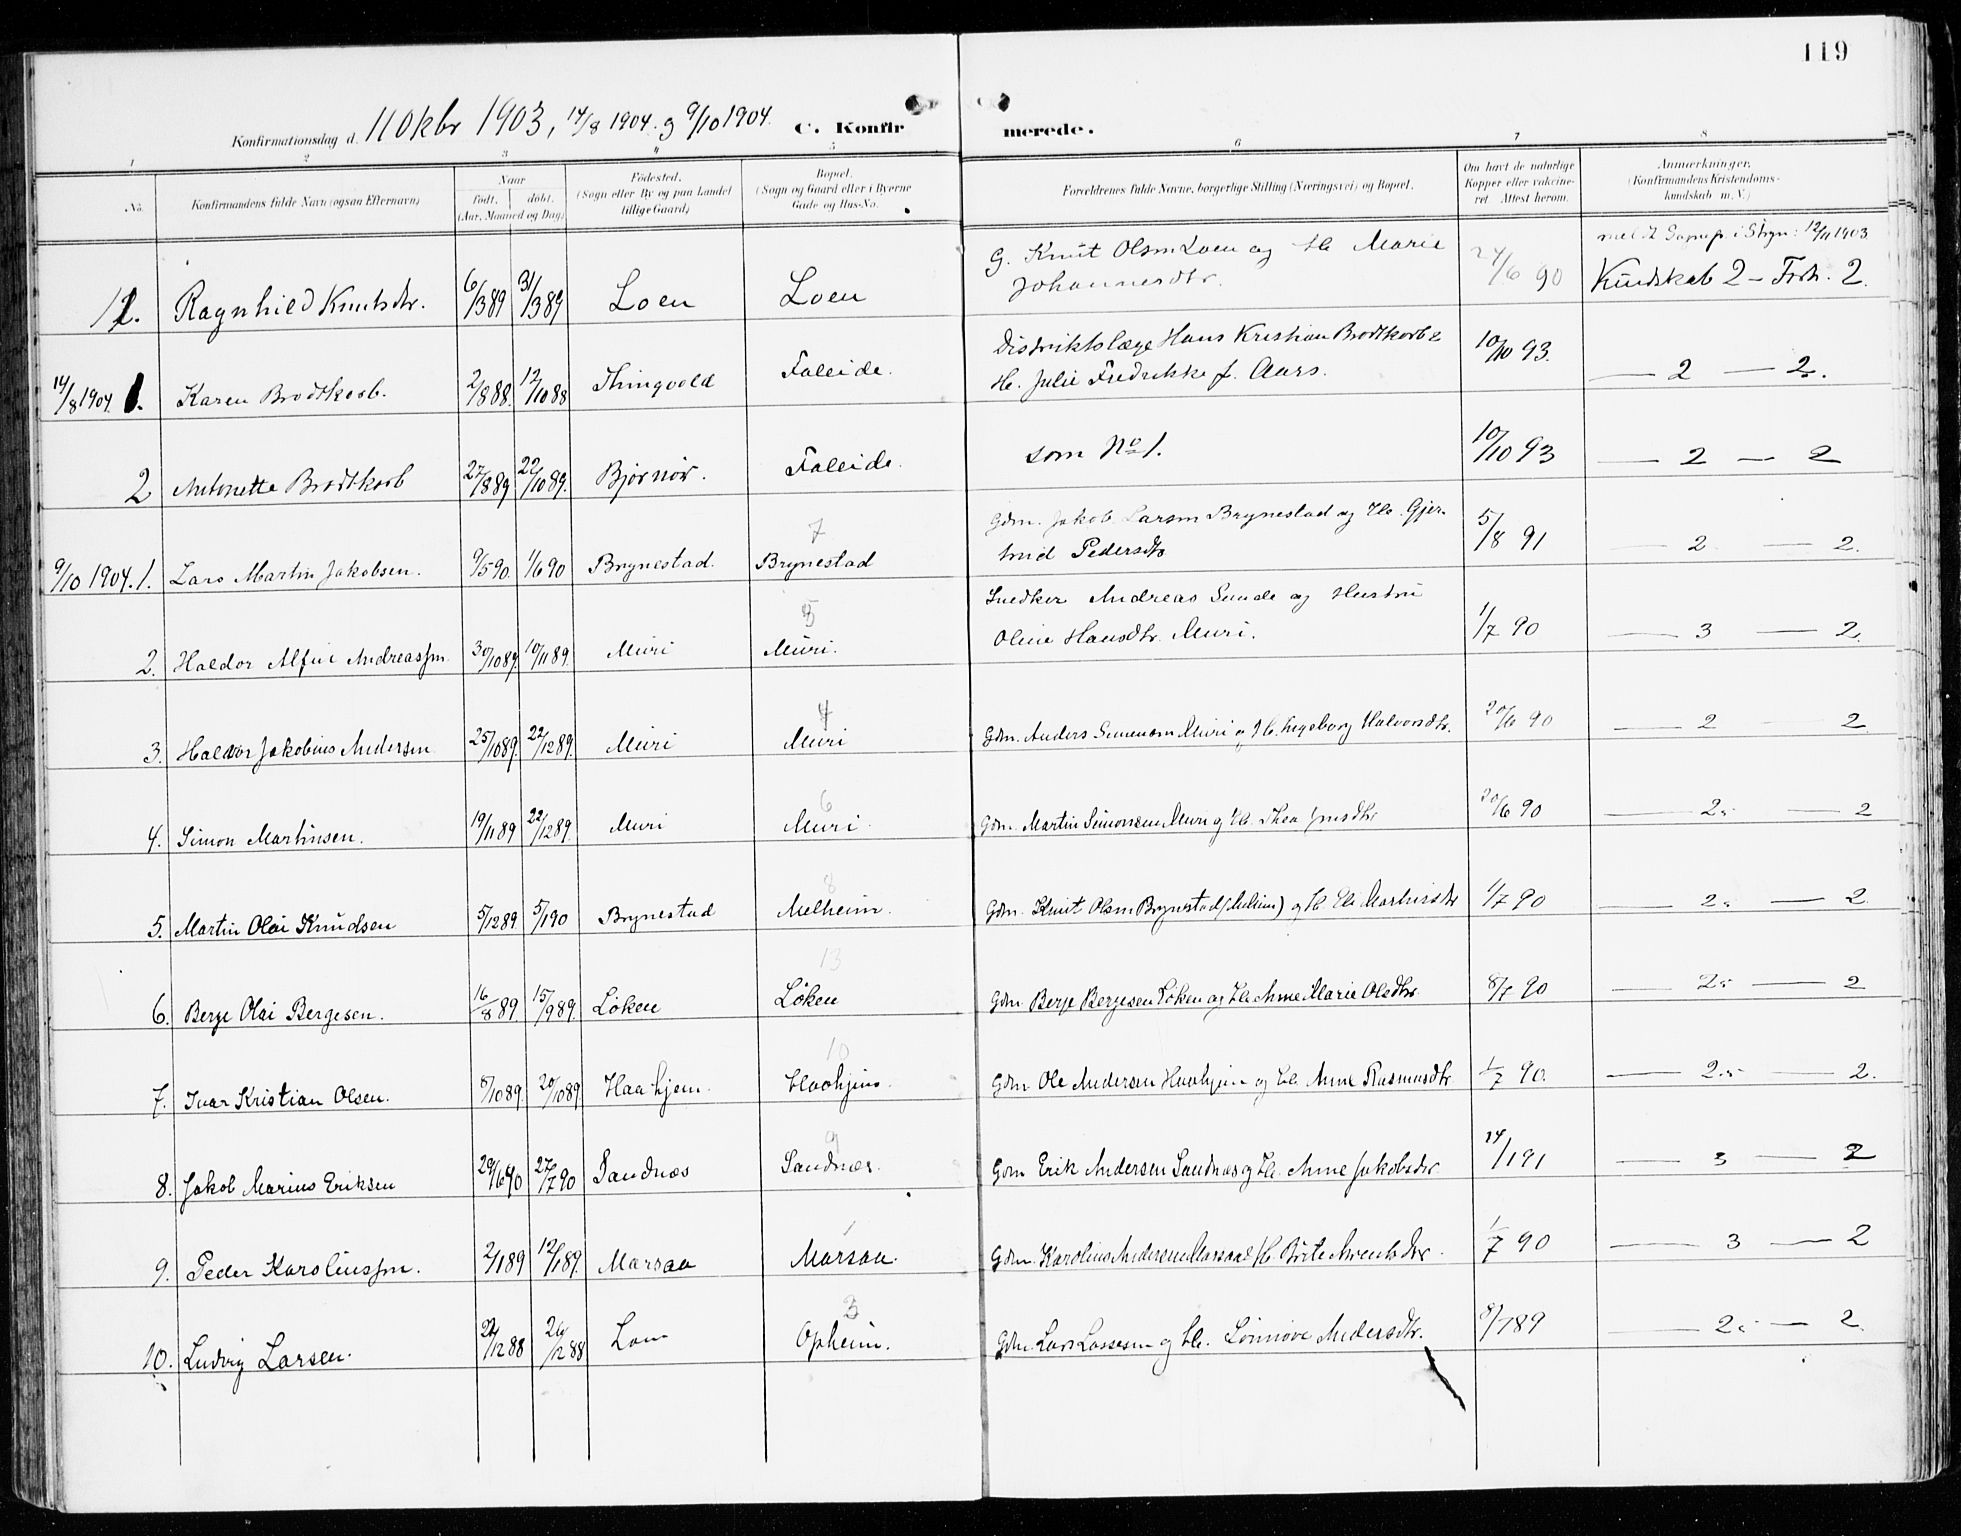 119
Konfirmationsdag d. 11 Okbr 1903, 14/8 1904. g 9/10 1904. C. Konfirmerede.
1 2 3 4 5 6 7 8
No. Konfirmandens fulde Navn (ogsaa Efternavn) Naar født. døbt. (Aar, Maaned og Dag) Fødested. (Sogn eller By og paa Landet tillige Gaard) Bopæl. (Sogn og Gaard eller i Byerne Gade og Hus-No. Forældrenes fulde Navne, borgerlige Stilling (Næringsvei) og Bopæl. Om havt de naturlige Kopper eller vaccineret. Attest herom. Anmærkninger. (Konfirmandens Kristendomskundskab m. V.)
12. Ragnhild Knutsdtr. 6/3 89 31/3 89 Loen Loen G. Knut Olsen Loen og H. Marie Johannesdtr. 24/6 90 i Stryn: 12/11 1903. Kundskab 2 – Forh. 2.
14/8 1904. 1. Karen Brodtkorb. 2/8 88. 12/10 88 Thingvold Faleide. Distriktslæge Hans Kristian Brodtkorb & H. Julie Fredrikke f. Aars. 10/10 93. — 2 — 2.
2 Antonette Brodtkorb 27/8 89 22/10 89. Bjørnør. Faleide. som No 1. 10/10 93 — 2 — 2
9/10 1904. 1. Lars Martin Jakobsen. 9/5 90. 1/6 90 Brynestad. 7 Brynestad Gdm. Jakob Larsen Brynestad og H. Gjertrud Pedersdtr 5/8 91 — 2 — 2.
2. Haldor Alfin Andreassn. 30/10 89. 10/11 89. Muri 5 Muri. Snedker Andreas Sunde og Hustru Oline Hansdtr. Muri. 1/7 90 — 3 — 2.
3. Haldor Jakobius Andersen 25/10 89. 22/12 89. Muri 4 Muri Gdm. Anders Simensen Muri og H. Ingeborg Halvorsdtr. 20/6 90 — 2 — 2
4. Simon Martinsen. 19/11 89 22/12 89. Muri 6 Muri. Gdm. Martin Simonsen Muri og H. Thea Jensdtr 20/6 90 — 2. — 2
5. Martin Olai Knudsen 5/12 89. 5/1 90 Brynestad 8 Melheim. Gdm. Knut Olsen Brynestad (Melheim) og H. Eli Martinsdtr 1/7 90 — 2. — 2
6. Berge Olai Bergesen. 16/8 89 15/9 89. Løken 13 Løken Gdm. Berge Bergesen Løken og H. Anne Marie Olsdtr. 8/7 90 — 2. — 2
7. Ivar Kristian Olsen. 8/10 89. 20/10 89 Haahjem. 10 Haahjem. Gdm. Ole Andersen Haahjem og H. Anne Rasmusdtr 1/7 90. — 2. — 2.
8. Jakob Marius Eriksen 29/6 90 27/7 90 Sandnæs 9 Sandnæs. Gdm Erik Andersen Sandnæs og H. Anne Jakobsdtr 14/1 91 — 3 — 2
9. Peder Karoliussn. 2/1 89 12/1 89. Marsaa 1 Marsaa. Gdm. Karolius Andersen Marsaa & H. Brite Arentsdtr. 1/7 90 — 3 — 2
10. Ludvig Larsen. 22/12 88 26/12 88 3 Opheim. Gdm. Lars Lassesen og H. Sønnøve Andersdtr. 8/7 89 — 2. — 2